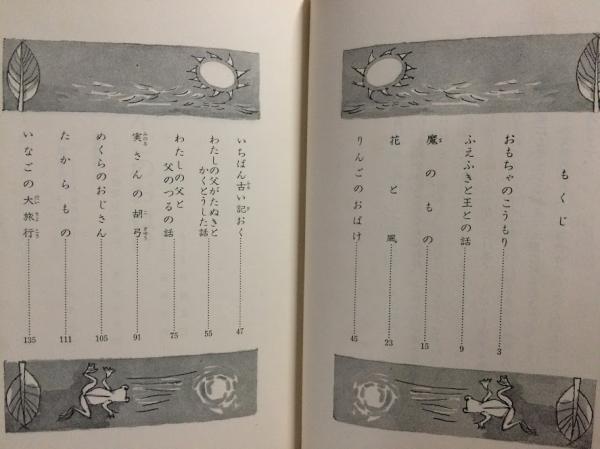 もくじ
おもちゃのこうもり 3
ふえふきと王との話 9
魔のもの 15
花と風 23
りんごのおばけ 45
いちばん古い記おく 47
わたしの父がたぬきと
かくとうした話 55
わたしの父と
父のつるの話 75
実さんの胡弓 91
めくらのおじさん 105
たからもの 111
いなごの大旅行 135